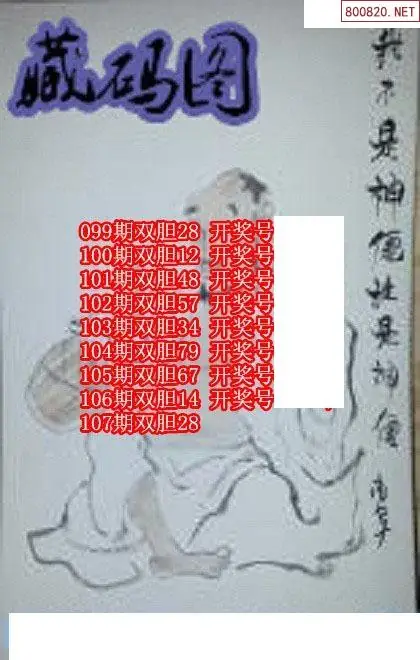 800820.NET
藏码图
099期双胆28 开奖号
100期双胆12 开奖号
101期双胆48 开奖号
102期双胆57 开奖号
103期双胆34 开奖号
104期双胆79 开奖号
105期双胆67 开奖号
106期双胆14 开奖号
107期双胆28
我不是神便社是神便